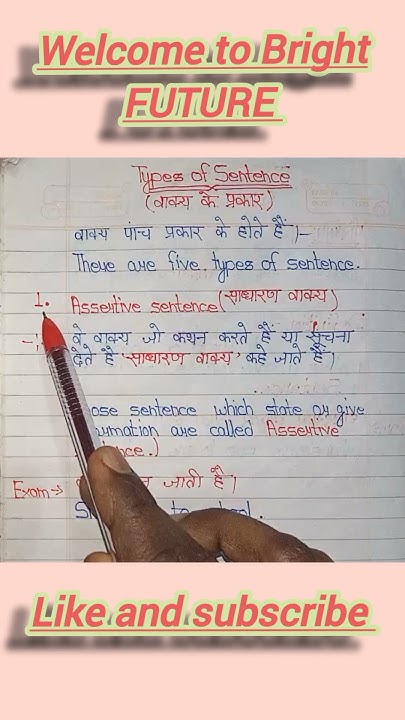 Welcome to Bright
FUTURE
Types of Sentence
(वाक्य के प्रकार)
वाक्य पांच प्रकार के होते हैं।-
There are five types of sentence.
1. Assertive sentence (साधारण वाक्य)
वे वाक्य जो कथन करते हैं या सूचना
देते है 'साधारण वाक्य' कहे जाते हैं।
sentence which state or give
are called Assertive
Exam->
जाती है।
to
Like and subscribe